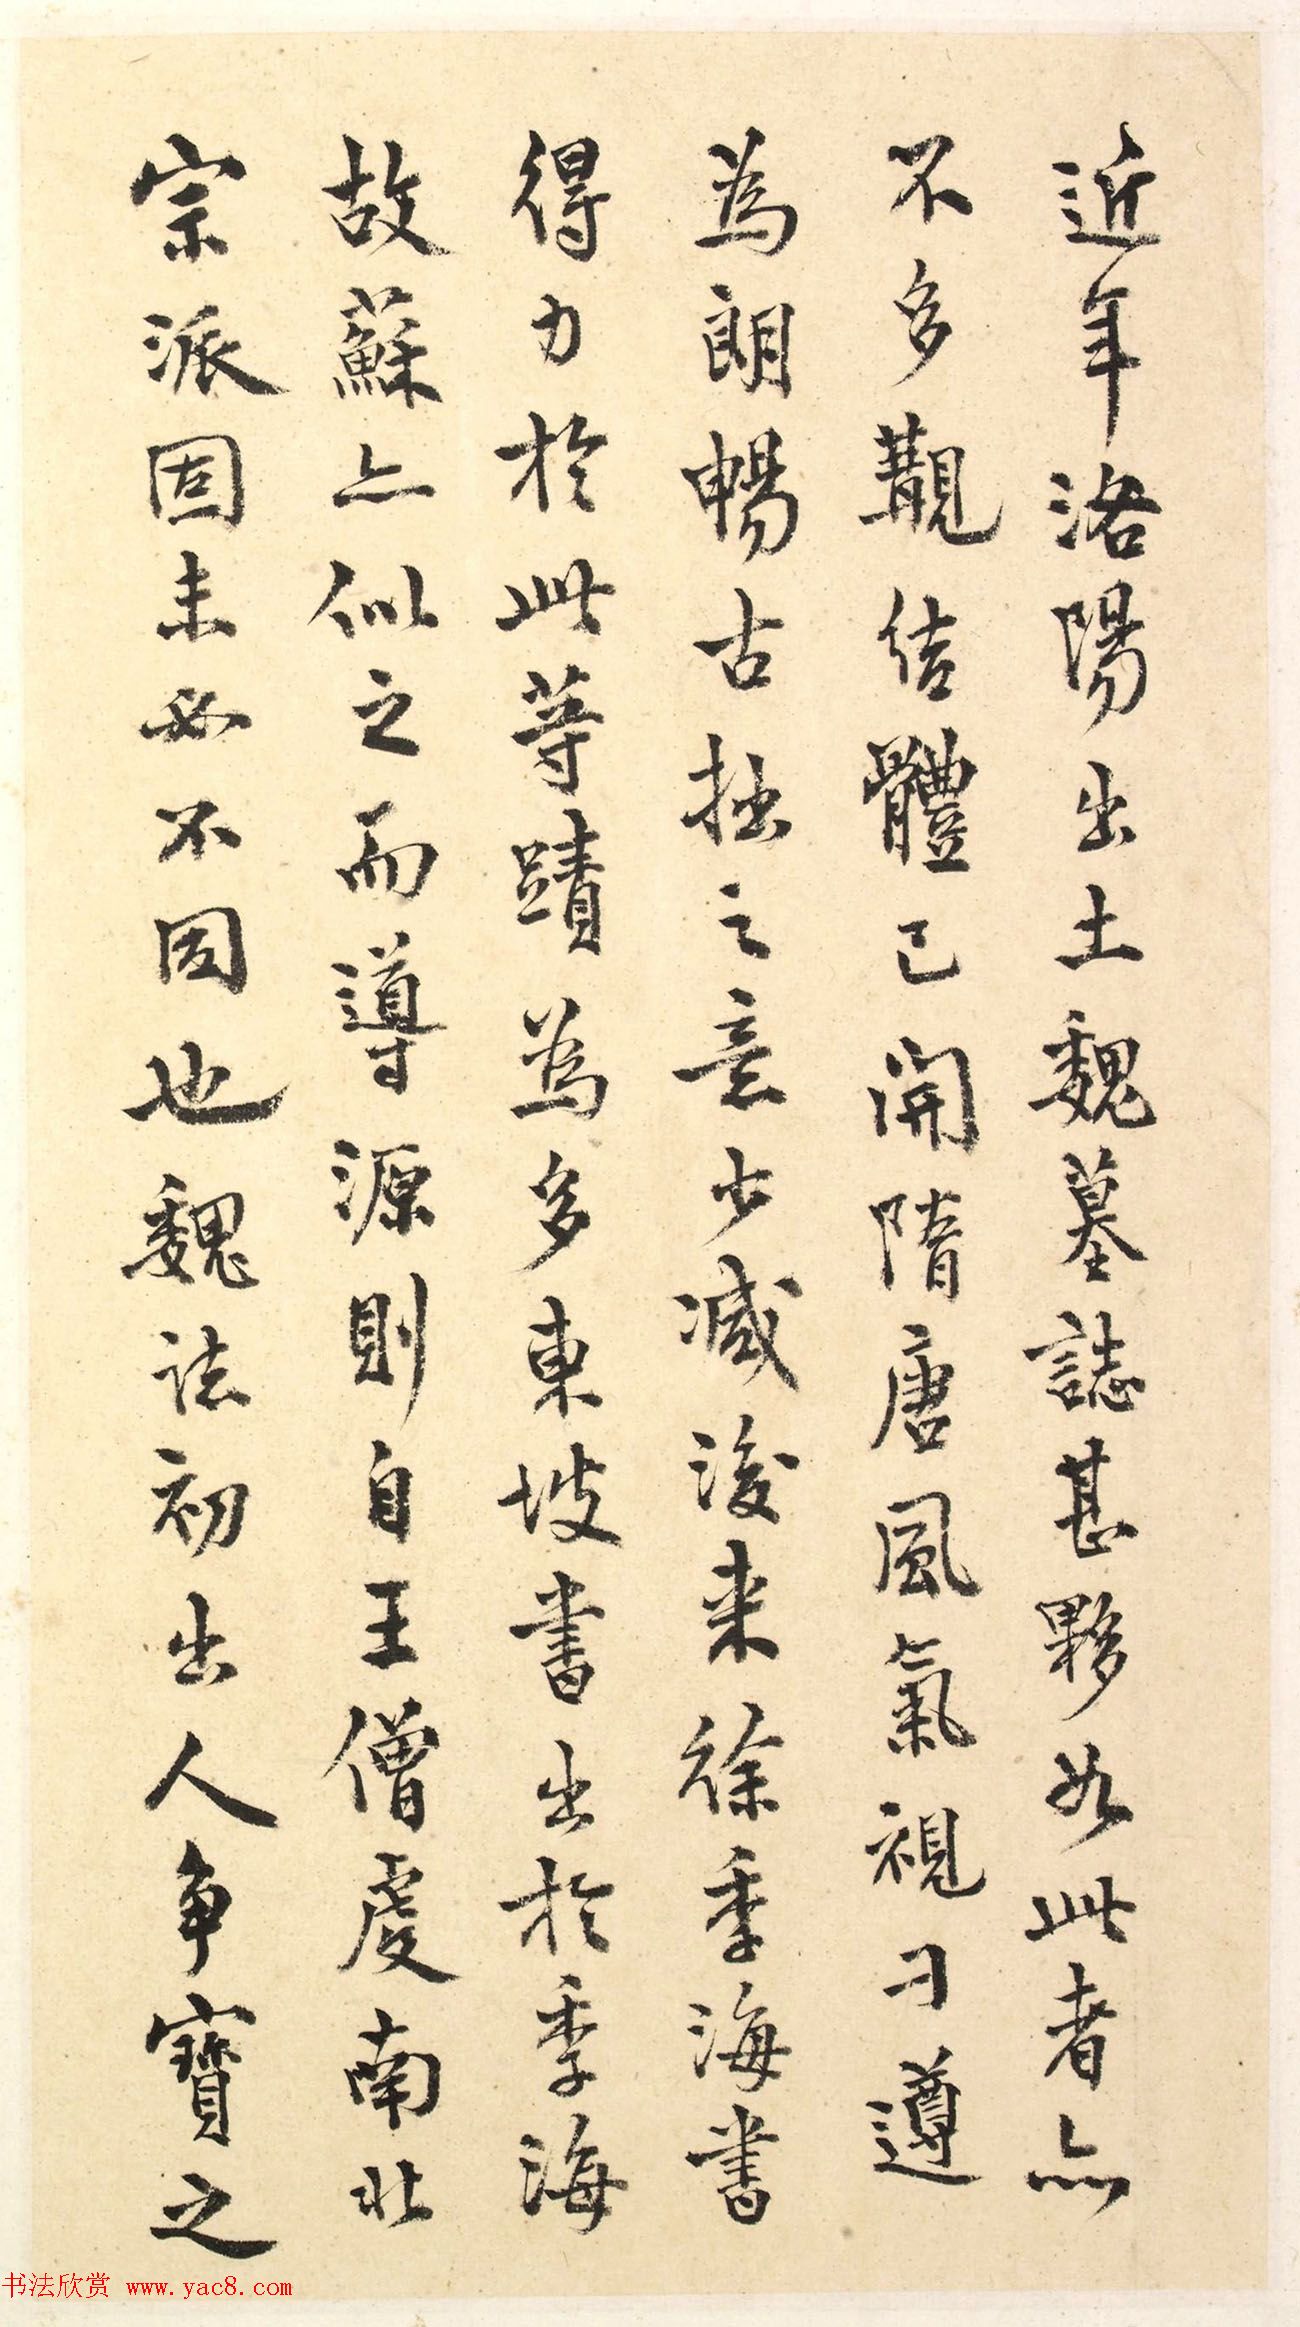 近年洛陽出土魏墓誌甚夥如此者亦
不多觏结體已開隋唐風氣視刁遵
為朗暢古拙之意少減後来徐季海書
得力於此等蹟為多東坡書出於季海
故蘇亦似之而導源則自王僧虔南北
宗派固未必不同也魏法初出人争寶之
书法欣赏 www.yac8.com